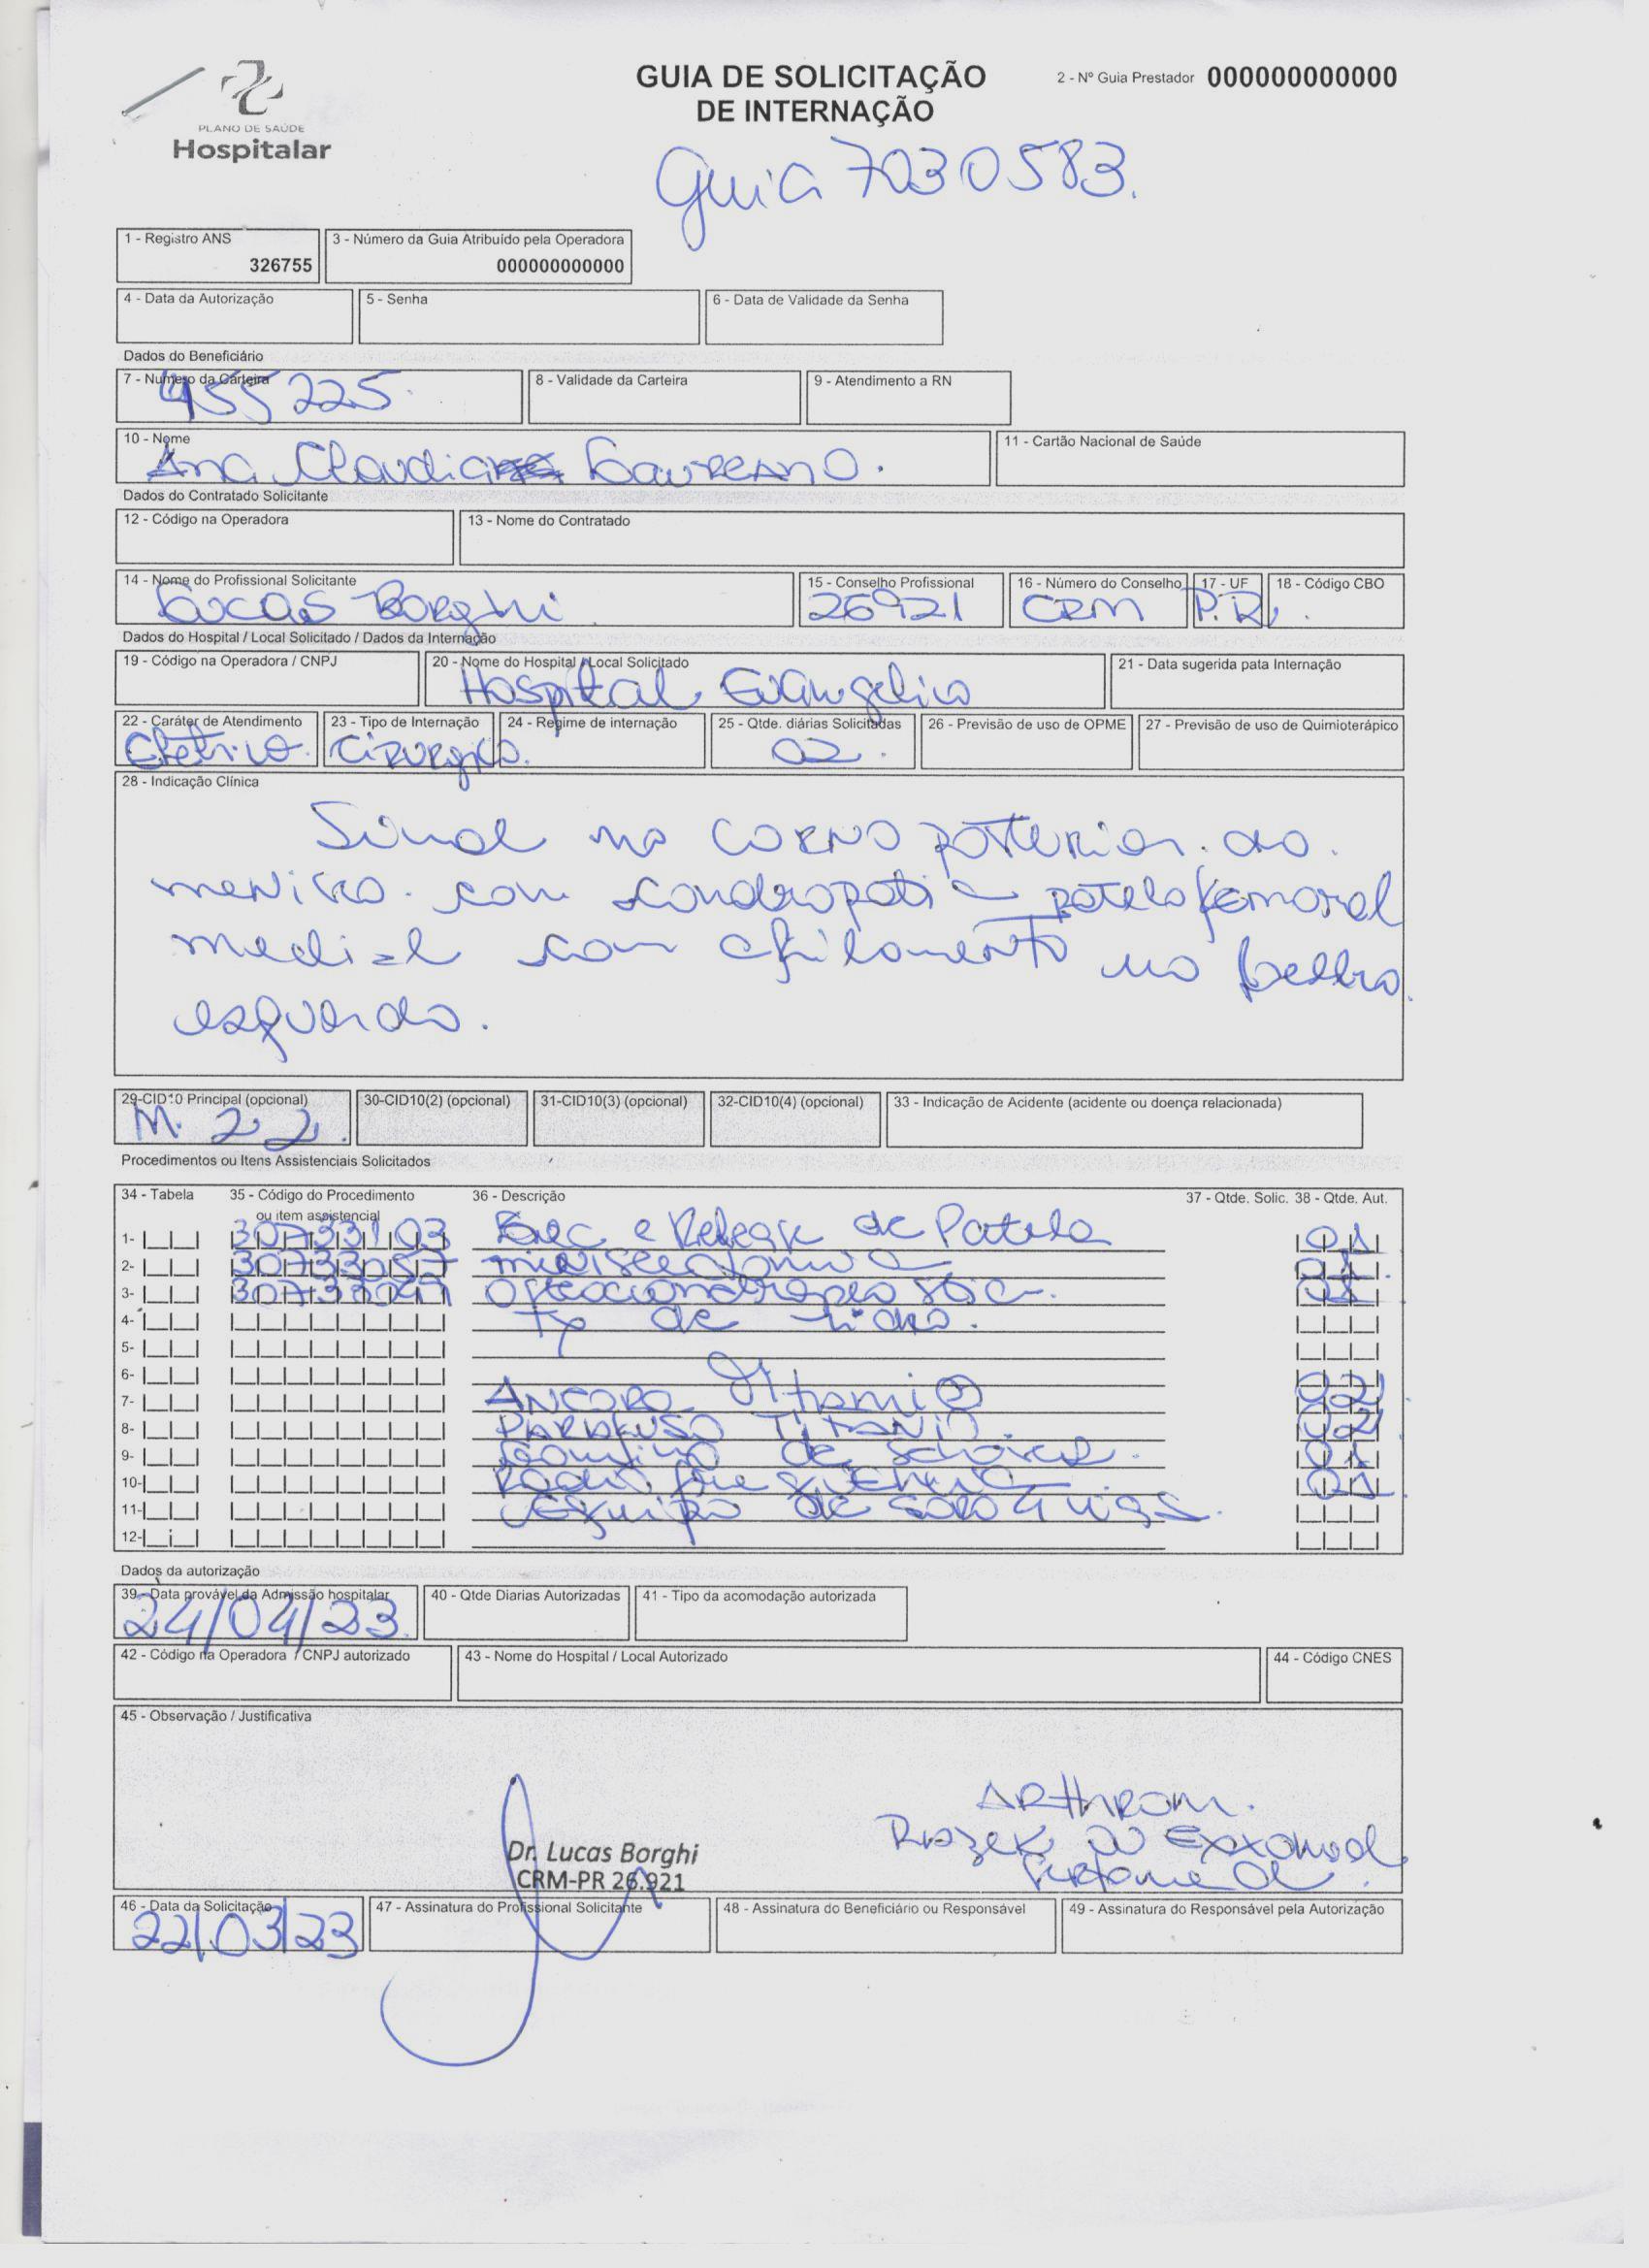 PLANO DE SAÚDE
Hospitalar
GUIA DE SOLICITAÇÃO
DE INTERNAÇÃO
2 - Nº Guia Prestador 000000000000
Guia 7030583.
1 - Registro ANS 3 - Número da Guia Atribuído pela Operadora
326755 000000000000
4 - Data da Autorização 5 - Senha 6 - Data de Validade da Senha
Dados do Beneficiário
7 - Numero da Carteira 8 - Validade da Carteira 9 - Atendimento a RN
455225.
10 - Nome 11 - Cartão Nacional de Saúde
Ana Claudia Laureano.
Dados do Contratado Solicitante
12 - Código na Operadora 13 - Nome do Contratado
14 - Nome do Profissional Solicitante 15 - Conselho Profissional 16 - Número do Conselho 17 - UF 18 - Código CBO
Lucas Borghi 26921 CRM P.R.
Dados do Hospital / Local Solicitado / Dados da Internação
19 - Código na Operadora / CNPJ 20 - Nome do Hospital / Local Solicitado 21 - Data sugerida pata Internação
Hospital Evangelico
22 - Caráter de Atendimento 23 - Tipo de Internação 24 - Regime de internação 25 - Qtde. diárias Solicitadas 26 - Previsão de uso de OPME 27 - Previsão de uso de Quimioterápico
Eletivo. Cirurgico. 02.
28 - Indicação Clínica
Sinal no corno posterior do
menisco com condropatia patelofemoral
medial com afilamento no joelho
esquerdo.
29-CID10 Principal (opcional) 30-CID10(2) (opcional) 31-CID10(3) (opcional) 32-CID10(4) (opcional) 33 - Indicação de Acidente (acidente ou doença relacionada)
M. 22.
Procedimentos ou Itens Assistenciais Solicitados
34 - Tabela 35 - Código do Procedimento 36 - Descrição 37 - Qtde. Solic. 38 - Qtde. Aut.
ou item assistencial
1- 30733103 e Release de Patela 01
2- 30733057 01
3- 30733049 01
4- de
5-
6-
7- Ancora 02
8- Parafuso Titanio. 02
9- de shaver. 01
10- Radio frequencia 01
11- Equipo de 4 vias.
12-
Dados da autorização
39 - Data provável da Admissão hospitalar 40 - Qtde Diarias Autorizadas 41 - Tipo da acomodação autorizada
24/04/23.
42 - Código na Operadora / CNPJ autorizado 43 - Nome do Hospital / Local Autorizado 44 - Código CNES
45 - Observação / Justificativa
Arthrom.
Razek
Dr. Lucas Borghi
CRM-PR 26.921
46 - Data da Solicitação 47 - Assinatura do Profissional Solicitante 48 - Assinatura do Beneficiário ou Responsável 49 - Assinatura do Responsável pela Autorização
22/03/23